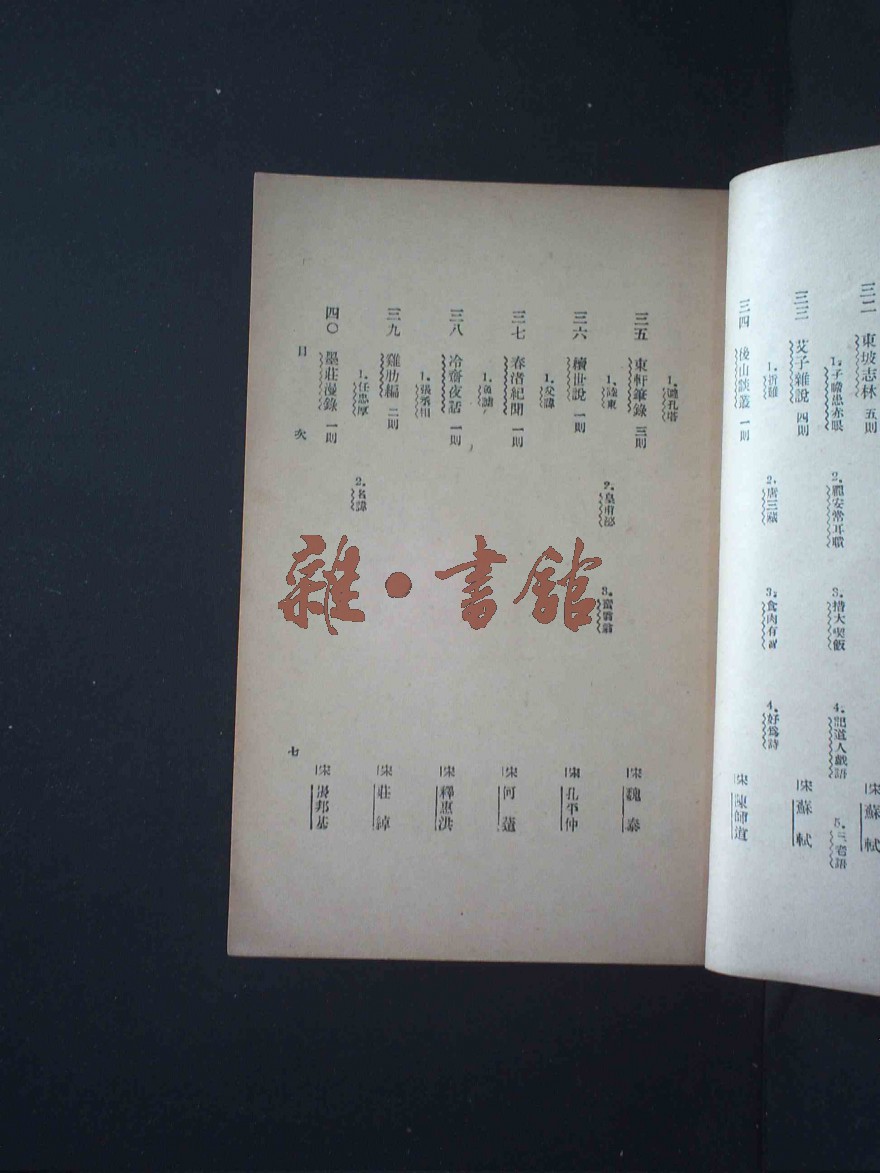 三二 東坡志林 五則 宋 蘇 軾
1.子瞻患赤眼 2.龐安常耳聵 3.措大喫飯 4.記道人戲語 5.三老語
三三 艾子雜說 四則 宋 蘇 軾
1.營丘 2.唐三藏 3.食肉有智 4.好爲詩
三四 後山談叢 一則 宋 陳師道
1.孔塔
三五 東軒筆錄 三則 宋 魏 泰
1.陸東 2.皇甫泌 3.
三六 續世說 一則 宋 孔平仲
1.父諱
三七 春渚紀聞 一則 宋 何 薳
1.
三八 冷齋夜話 一則 宋 釋惠洪
1.張丞相
三九 雞肋編 二則 宋 莊 綽
1.任忠厚 2.名諱
四〇 墨莊漫錄 一則 宋 張邦基
目 次
七
雜·書館